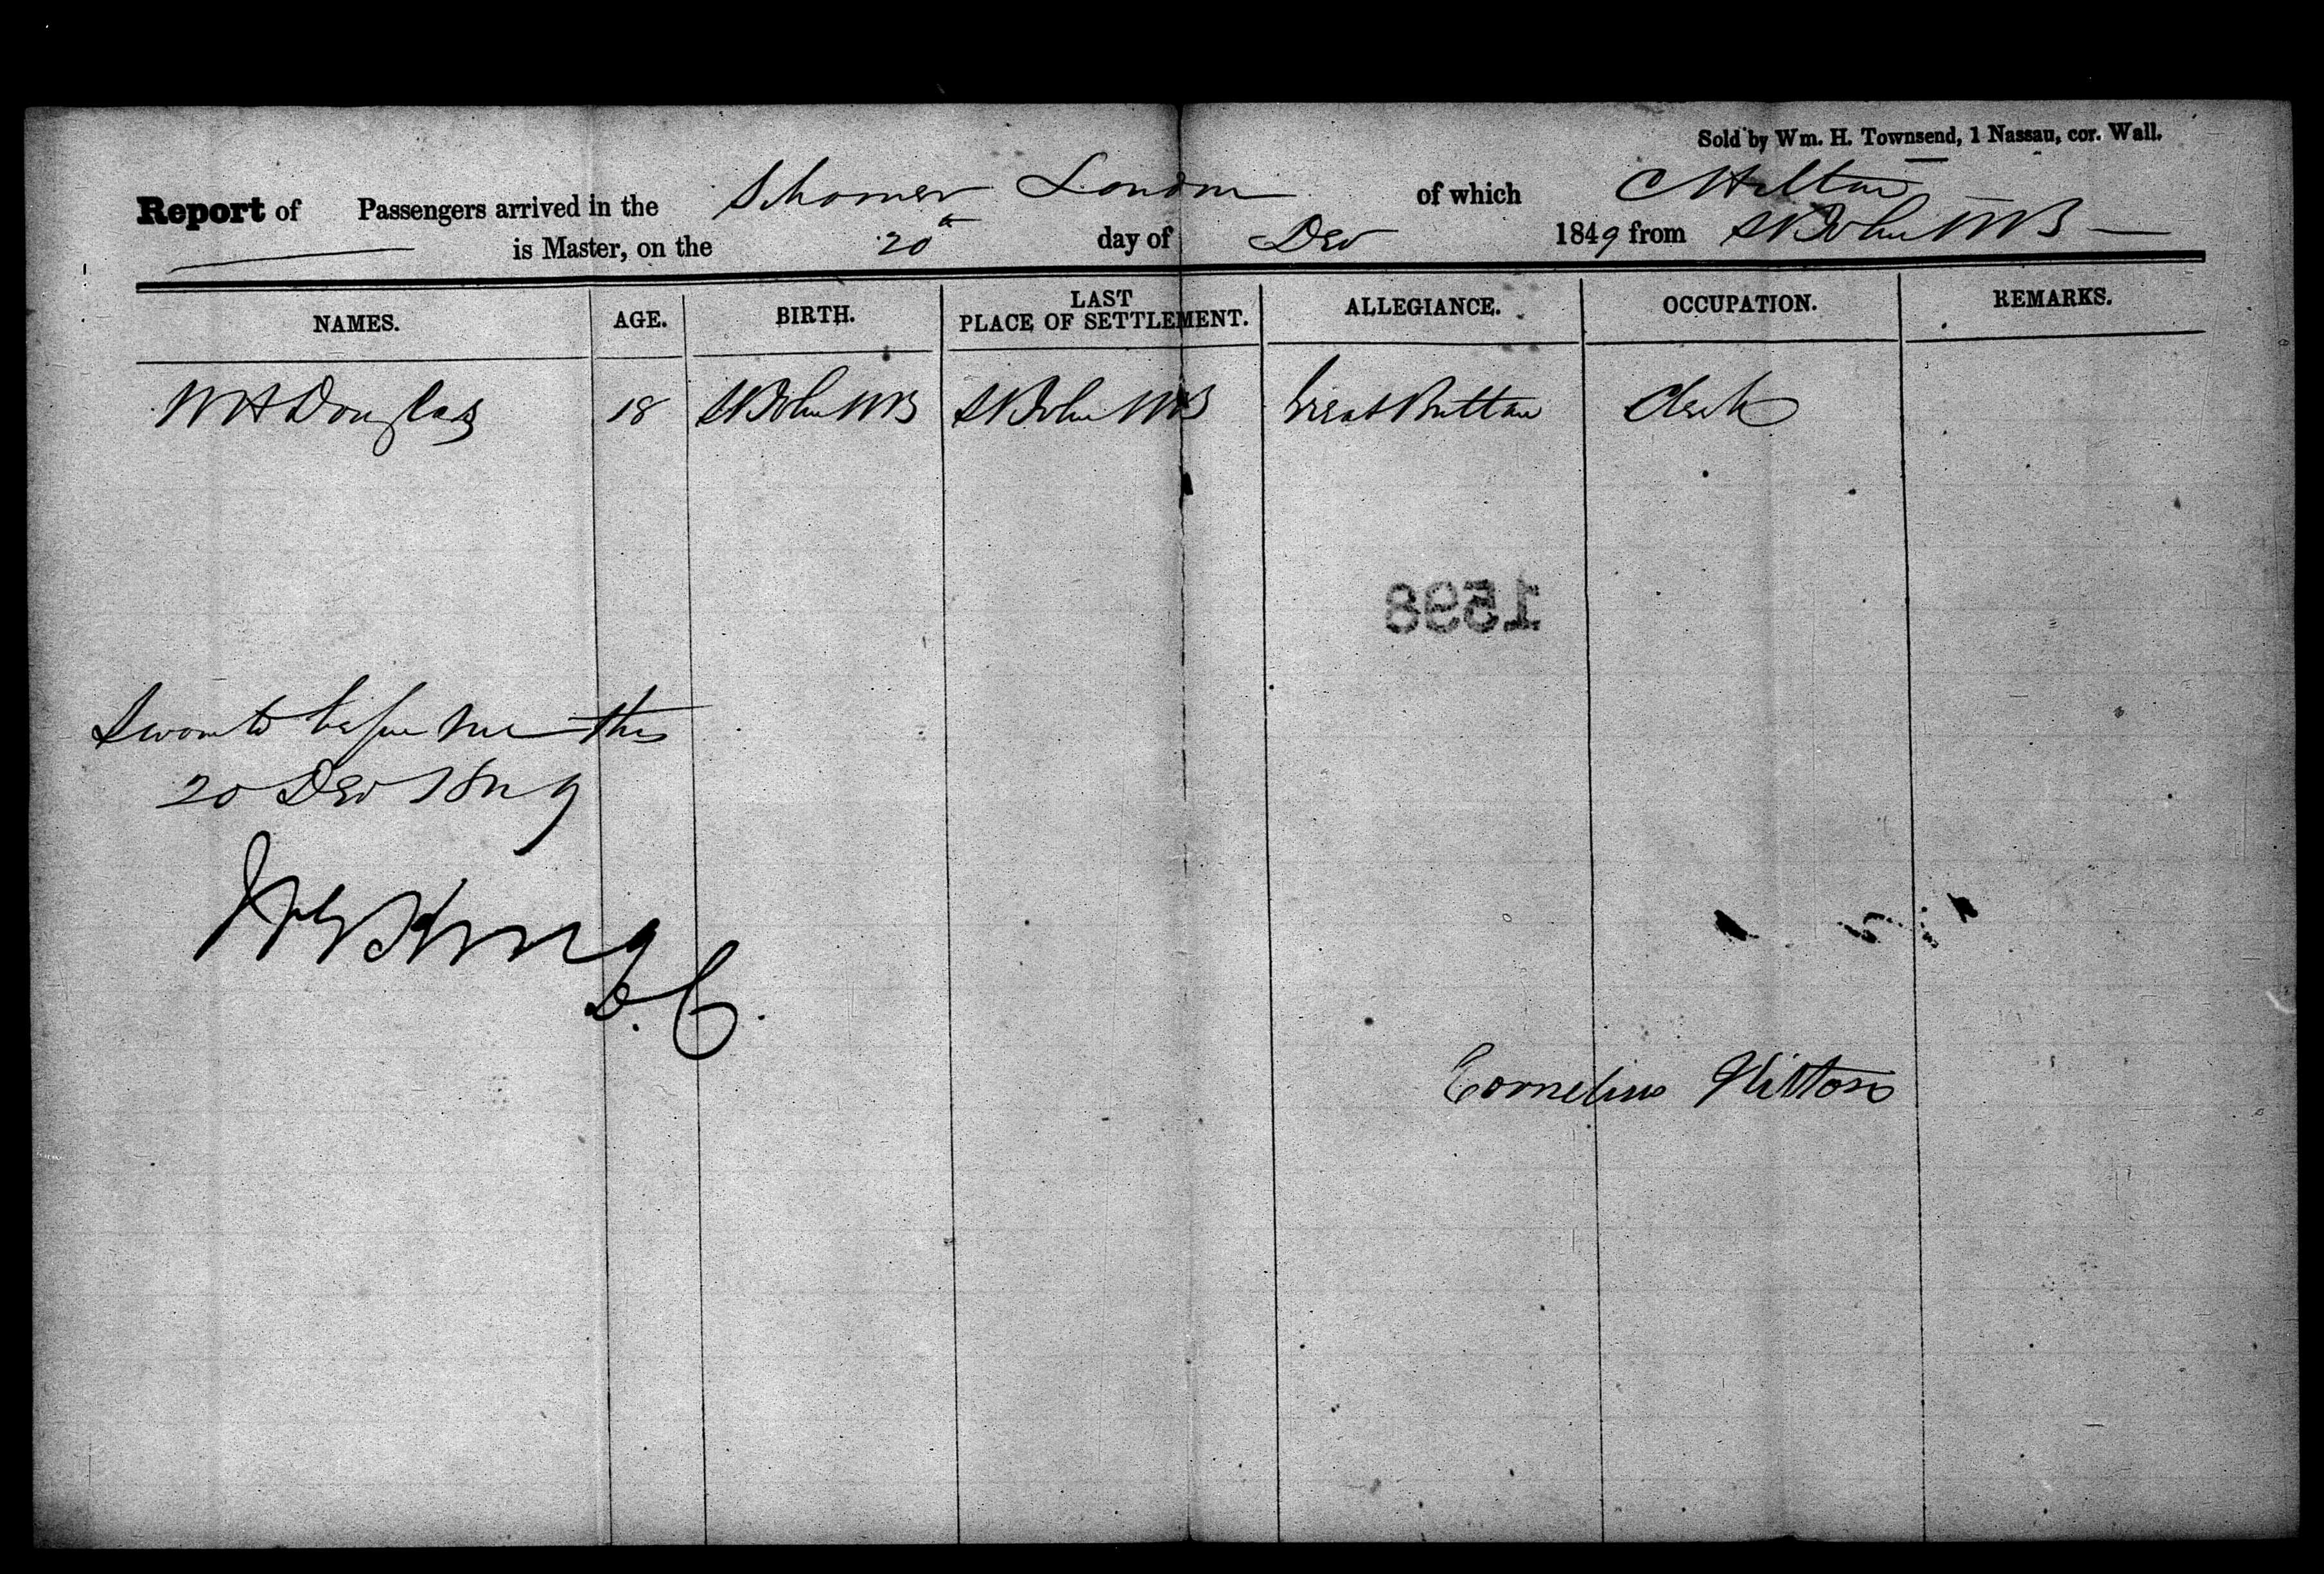 Sold by Wm. H. Townsend, 1 Nassau, cor. Wall.
Report of Passengers arrived in the Schooner London of which C Hilton
is Master, on the 20th day of Dec 1849 from St John NB
NAMES. AGE. BIRTH. LAST PLACE OF SETTLEMENT. ALLEGIANCE. OCCUPATION. REMARKS.
W H Douglas 18 St John NB St John NB Great Britain Clerk
1598
Sworn to before me this
20 Dec 1849
King
D.C.
Cornelius Hilton